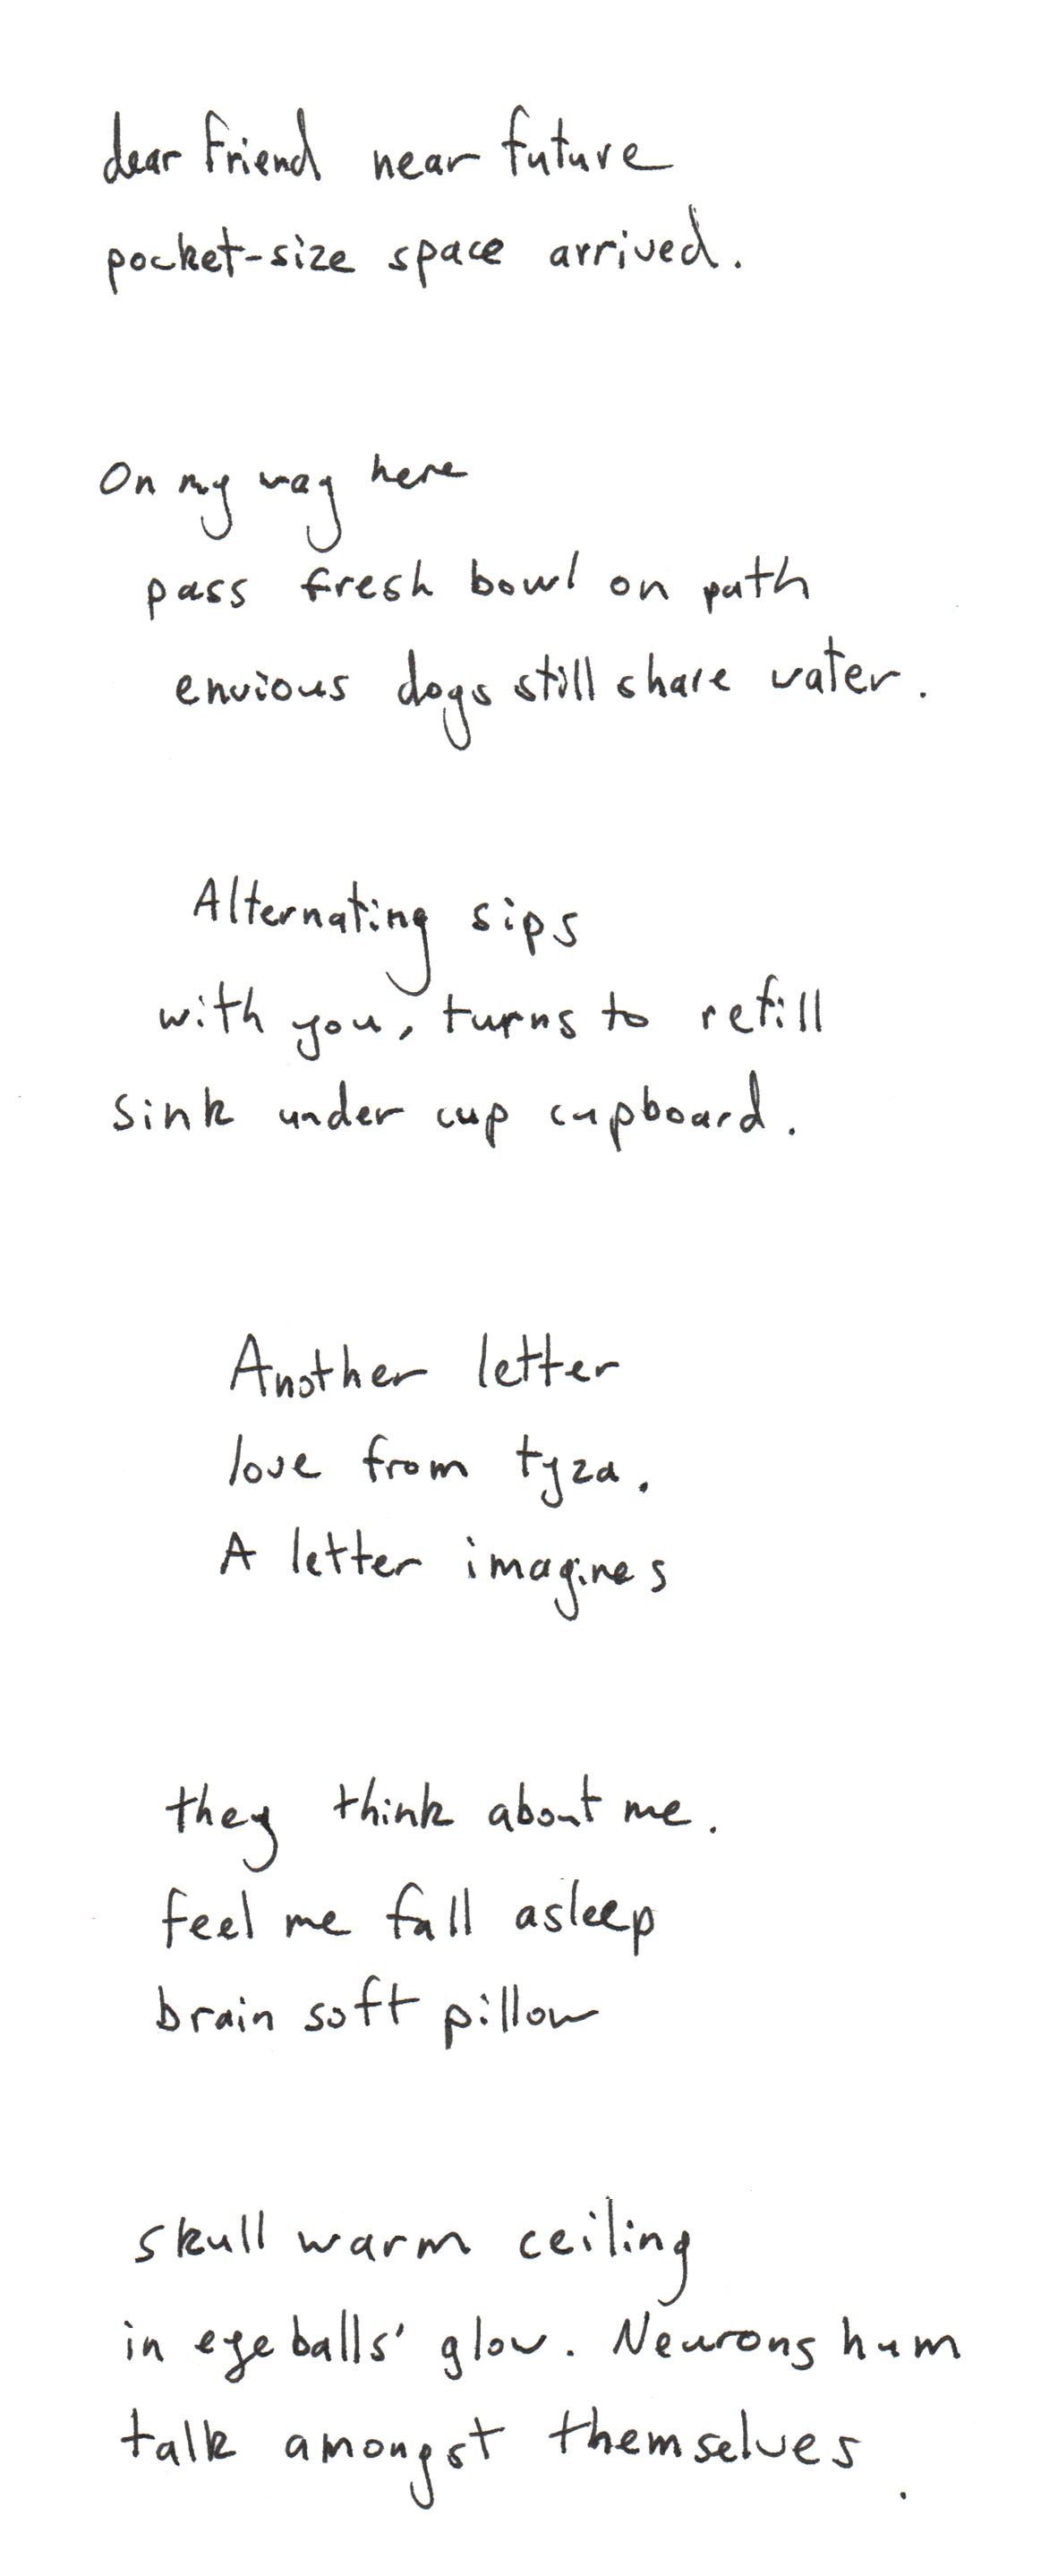 dear friend near future
pocket-size space arrived.
On my way here
pass fresh bowl on path
envious dogs still share water.
Alternating sips
with you, turns to refill
sink under cup cupboard.
Another letter
love from tyza.
A letter imagines
they think about me.
feel me fall asleep
brain soft pillow
skull warm ceiling
in eyeballs' glow. Neurons hum
talk amongst themselves.